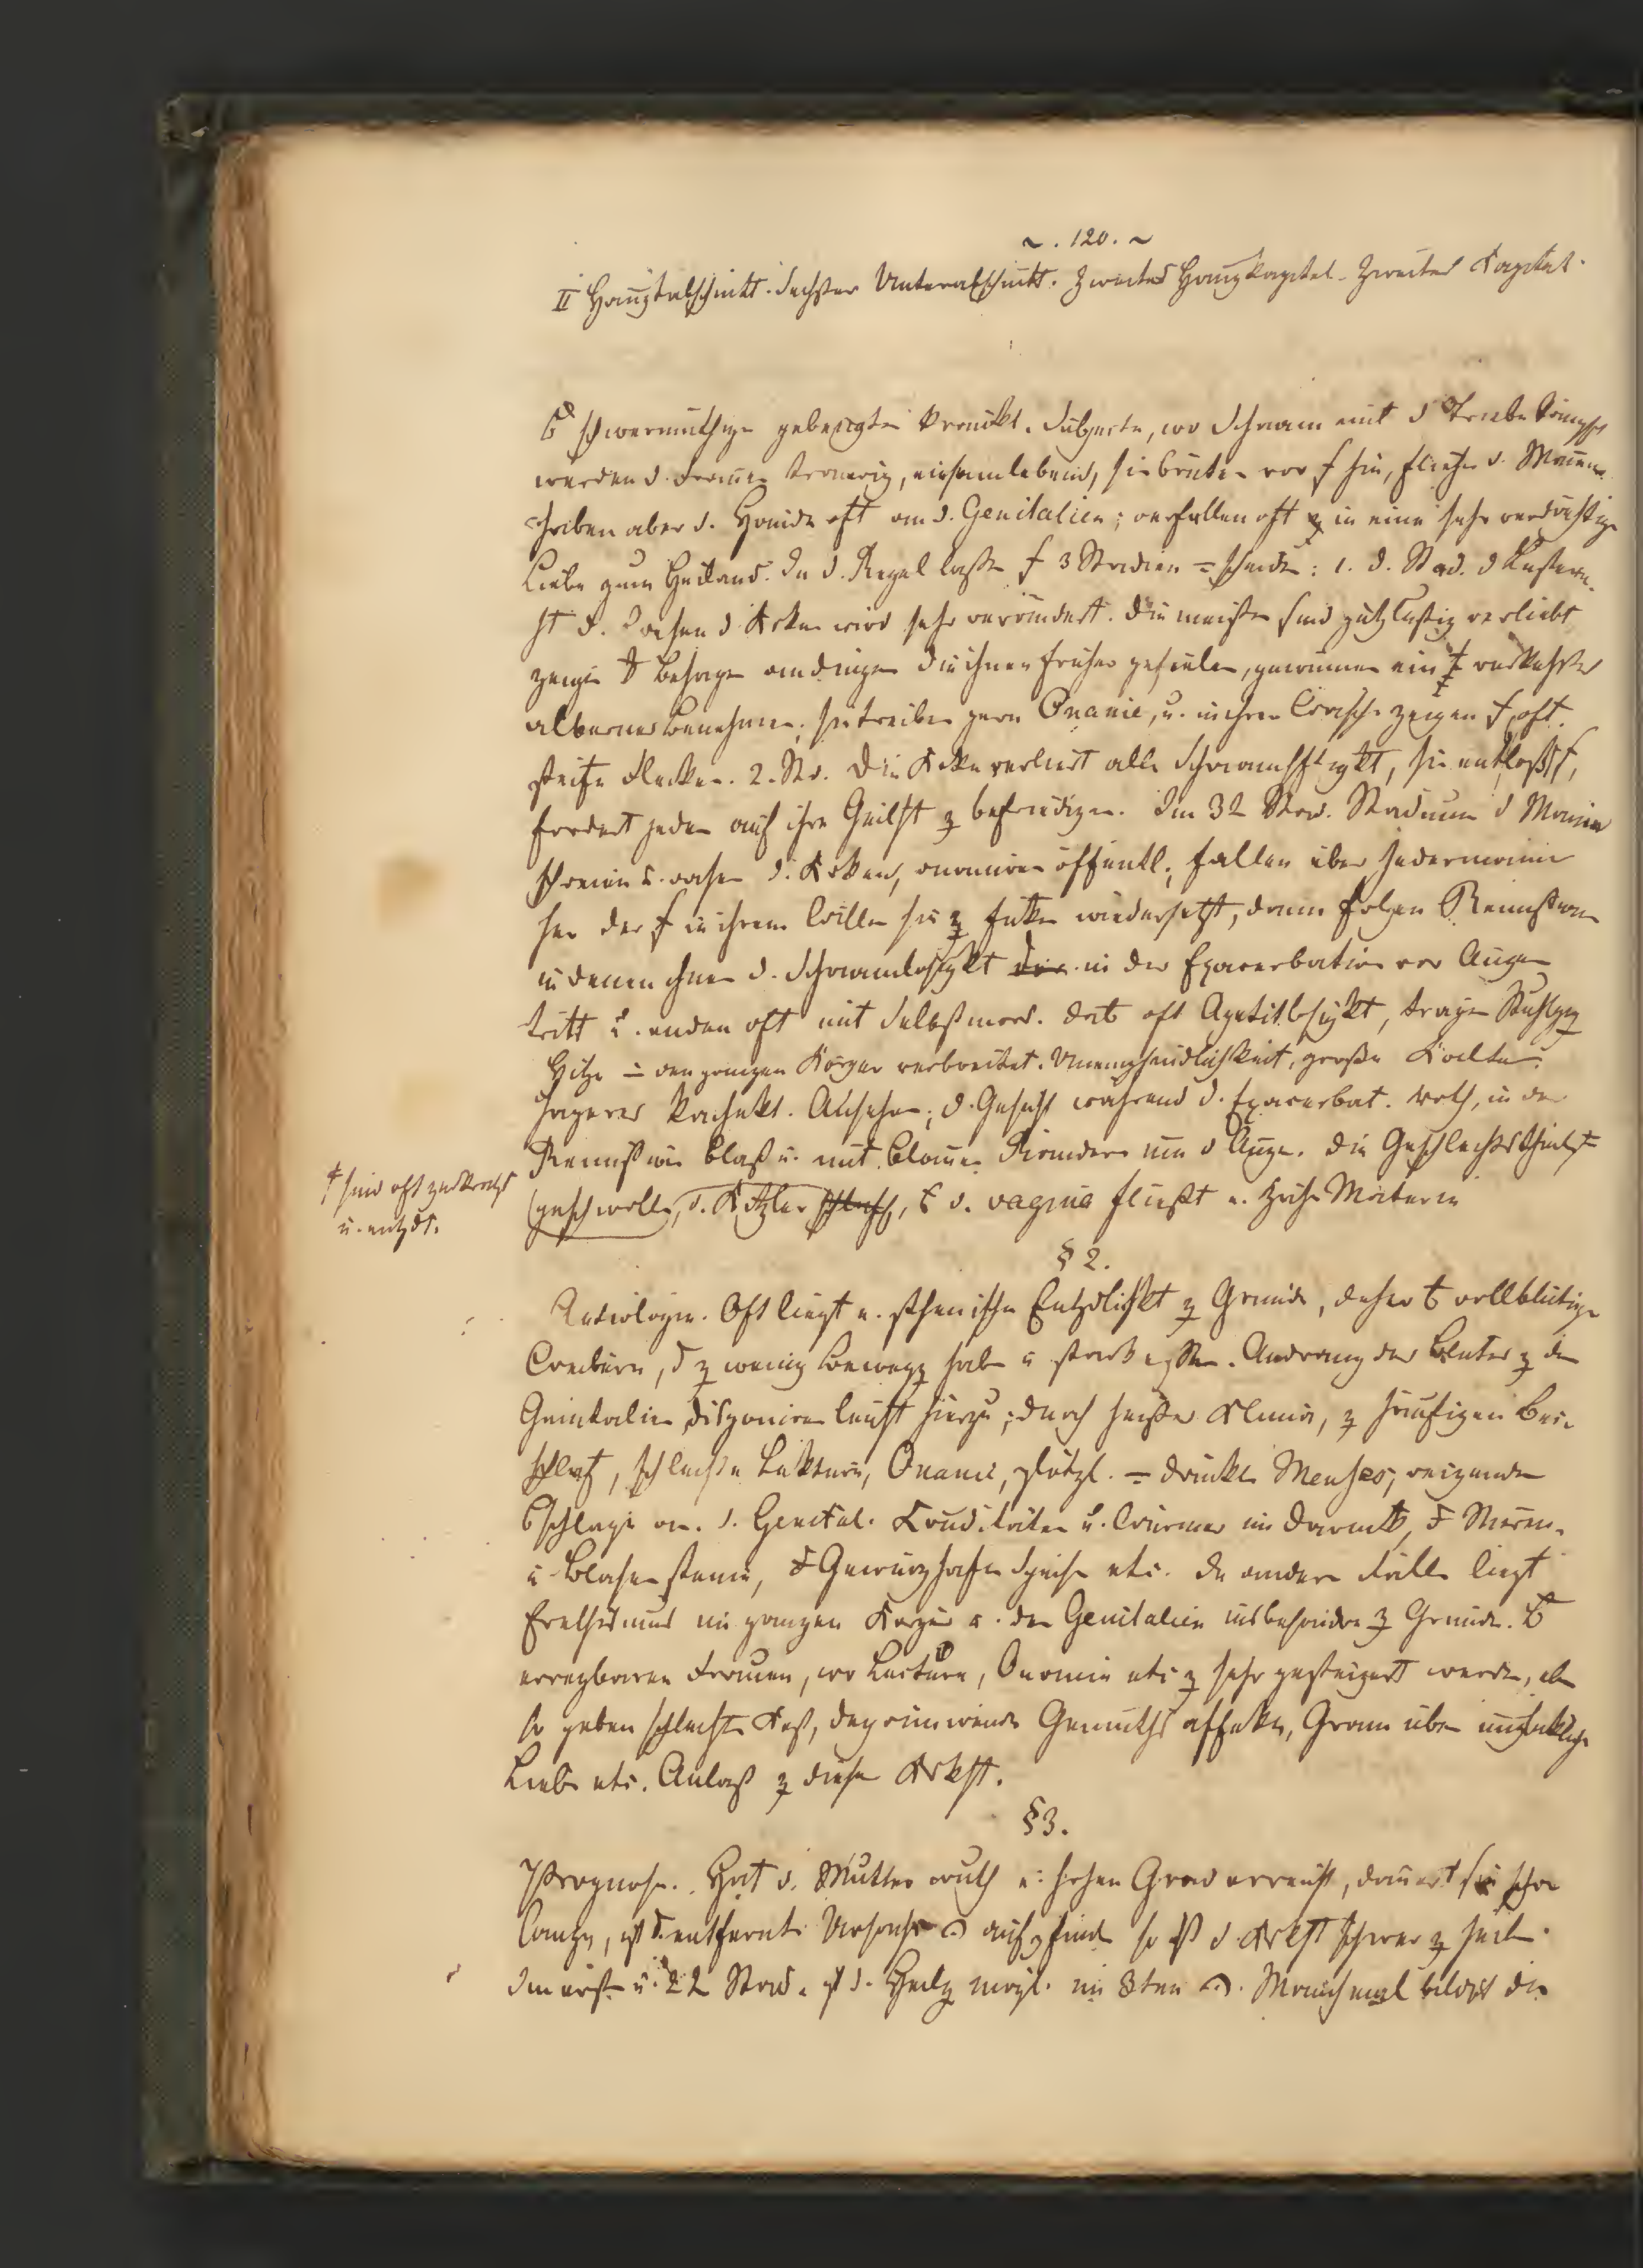 ~ . 120. ~
II Hauptabschnitt. Sechster Unterabschnitt. Zweites Hauptkapitel. Zweites Kapitel.
schwermüthige gebeugte kränkl. Subjecte, wo Scham mit d Triebe kämpft
werden d. Frauen traurig, einsamlebend, sie brüten vor hin, fliehen d. Männer
haben aber d. Hände oft an d. Genitalien; verfallen oft in eine sehr verdächtige
Liebe zum Heiland. In d. Regel lassen 3 Stadien = scheiden: 1. d. Stad. d Lüstern-
ht d. d Krken wird sehr verändert. Die meisten sind putzlustig verliebt
zeigen Behagen an dingen die ihnen früher gefielen, gewinnen ein verkehrtes
albernes Benehmen; sie treiben gern Onanie, u. in ihrer Wäsche zeigen oft
steife Flecken. 2. St. Die Krke verliert alle Schamhftigkt, sie entblößt,
fordert jeden auf ihre Geilht z befriedigen. Im 3t Stad. Stadium d Manie
schreien u. rasen d. Krken, onaniren öffentl., fallen über Jedermann
her der in ihrem Willen sie z wiedersetzt, dann folgen Remission
in denen ihnen d. Schamlosigkt in der Exacerbation vor Augen
tritt u. enden oft mit Selbstmord. oft Apetitlosigkt, träger Stuhlgg
Hitze = den ganzen Körper verbreitet. Unempfindlichkeit, große Kälte
hageres kachekt. Ansehen; d. Gesicht während d. Exacerbat. roth, in der
Remission blaß u. mit blauen Rändern um d Auge. Die Geschlechtstheile
geschwollen, d. Kitzler schlaff, d. vagina fließt e. zähe Materie
† sind oft zerkratzt
u. entzdt.
§ 2.
Aetiologie. Oft liegt e. sthenische Entzdlichkt z Grunde, daher vollblütige
Weibern, d z wenig Bewegg haben u stark essen. Andrang des Blutes z den
Genitalien, disponiren leicht hierzu; durch heißes Klima, z häufigen Bei-
schlaf, schlechte Lektüre, Onanie, plötzl. = drückte Menses, reizende
schläge an d. Genital. Cruditäten u. Würmer im Darm, Nieren-
u Blasensteine, Gewürzhafte Speisen etc. In andern Fällen liegt
Erethismus im ganzen Körper u. den Genitalien insbesondre z Grunde.
erregbaren Frauen, wo Lectüre, Onanie etc z sehr gesteigert werden, eben
so geben schlechte Kost, deprimirende Gemüthsaffekte, Gram über unglückliche
Liebe etc. Anlaß z dieser Krkht.
§ 3.
Prognose. Hat d. Mutterwuth e. hohen Grad erreicht, dauert sie schon
lange, ist d. entfernte Ursache aufzfinden so ist d. Krkht schwer z heilen.
Im erst u. 2t Stad. ist d. Heilg mögl. im 3ten. Manchmal bildet die